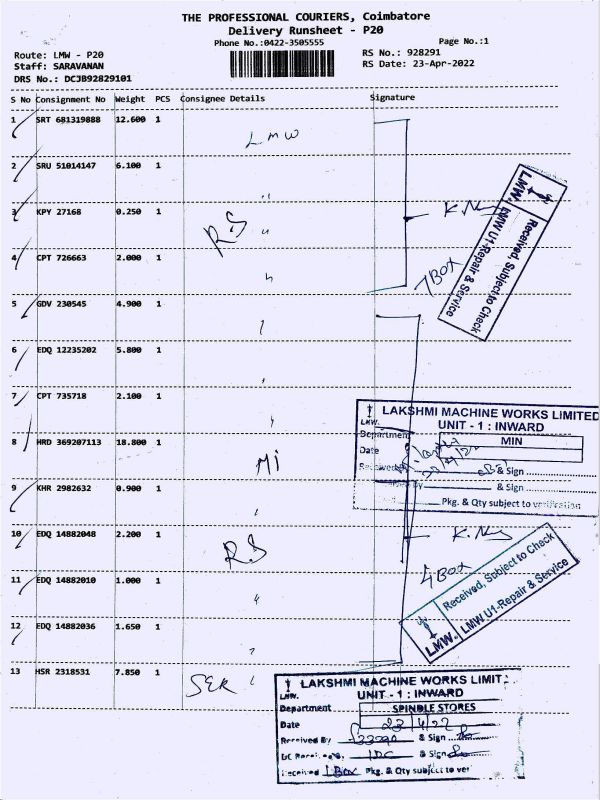 THE PROFESSIONAL COURIERS, Coimbatore
Delivery Runsheet - P20
Phone No.:0422-3505555
Page No.:1
Route: LMW - P20
RS No.: 928291
Staff: SARAVANAN
RS Date: 23-Apr-2022
DRS No.: DCJB92829101
S No Consignment No Weight PCS Consignee Details Signature
1 SRT 681319888 12.600 1
LMW
2 SRU 51014147 6.100 1
3 KPY 27168 0.250 1
RS
4 CPT 726663 2.000 1
5 GDV 230545 4.900 1
6 EDQ 12235202 5.800 1
7 CPT 735718 2.100 1
8 HRD 369207113 18.800 1
Mi
9 KHR 2982632 0.900 1
10 EDQ 14882048 2.200 1
RS
11 EDQ 14882010 1.000 1
12 EDQ 14882036 1.650 1
13 HSR 2318531 7.850 1
SER
7 BOX
LMW.
Received, Subject to Check
LMW U1-Repair & Service
LAKSHMI MACHINE WORKS LIMITED
LMW.
UNIT - 1 : INWARD
Department MIN
Date
Received & Sign
& Sign
Pkg. & Qty subject to verification
4 BOX
Received, Subject to Check
LMW U1-Repair & Service
LMW.
LAKSHMI MACHINE WORKS LIMIT
LMW.
UNIT - 1 : INWARD
Department SPINDLE STORES
Date 23/4/22
Received By & Sign
DC Received By & Sign
Received 1 Box Pkg. & Qty subject to ver